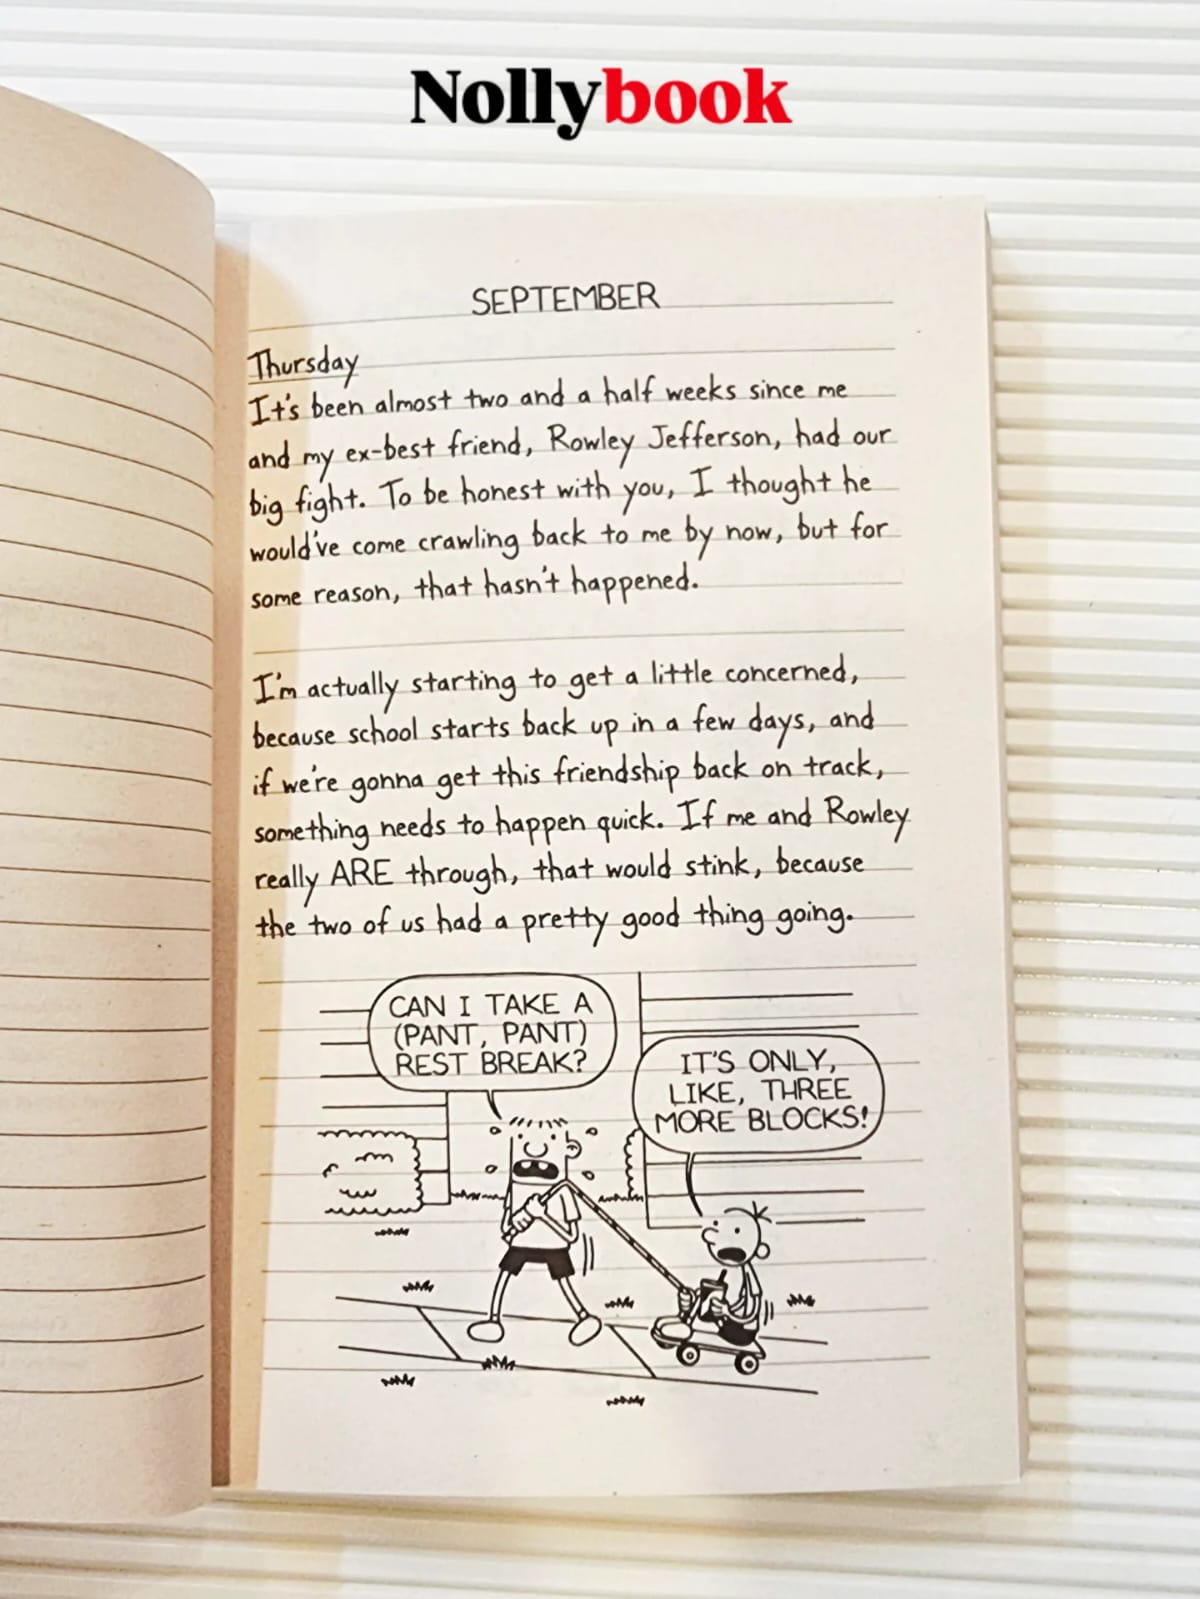 Nollybook
SEPTEMBER
Thursday
It's been almost two and a half weeks since me
and my ex-best friend, Rowley Jefferson, had our
big fight. To be honest with you, I thought he
would've come crawling back to me by now, but for
some reason, that hasn't happened.
I'm actually starting to get a little concerned,
because school starts back up in a few days, and
if we're gonna get this friendship back on track,
something needs to happen quick. If me and Rowley
really ARE through, that would stink, because
the two of us had a pretty good thing going.
CAN I TAKE A
(PANT, PANT)
REST BREAK?
IT'S ONLY,
LIKE, THREE
MORE BLOCKS!